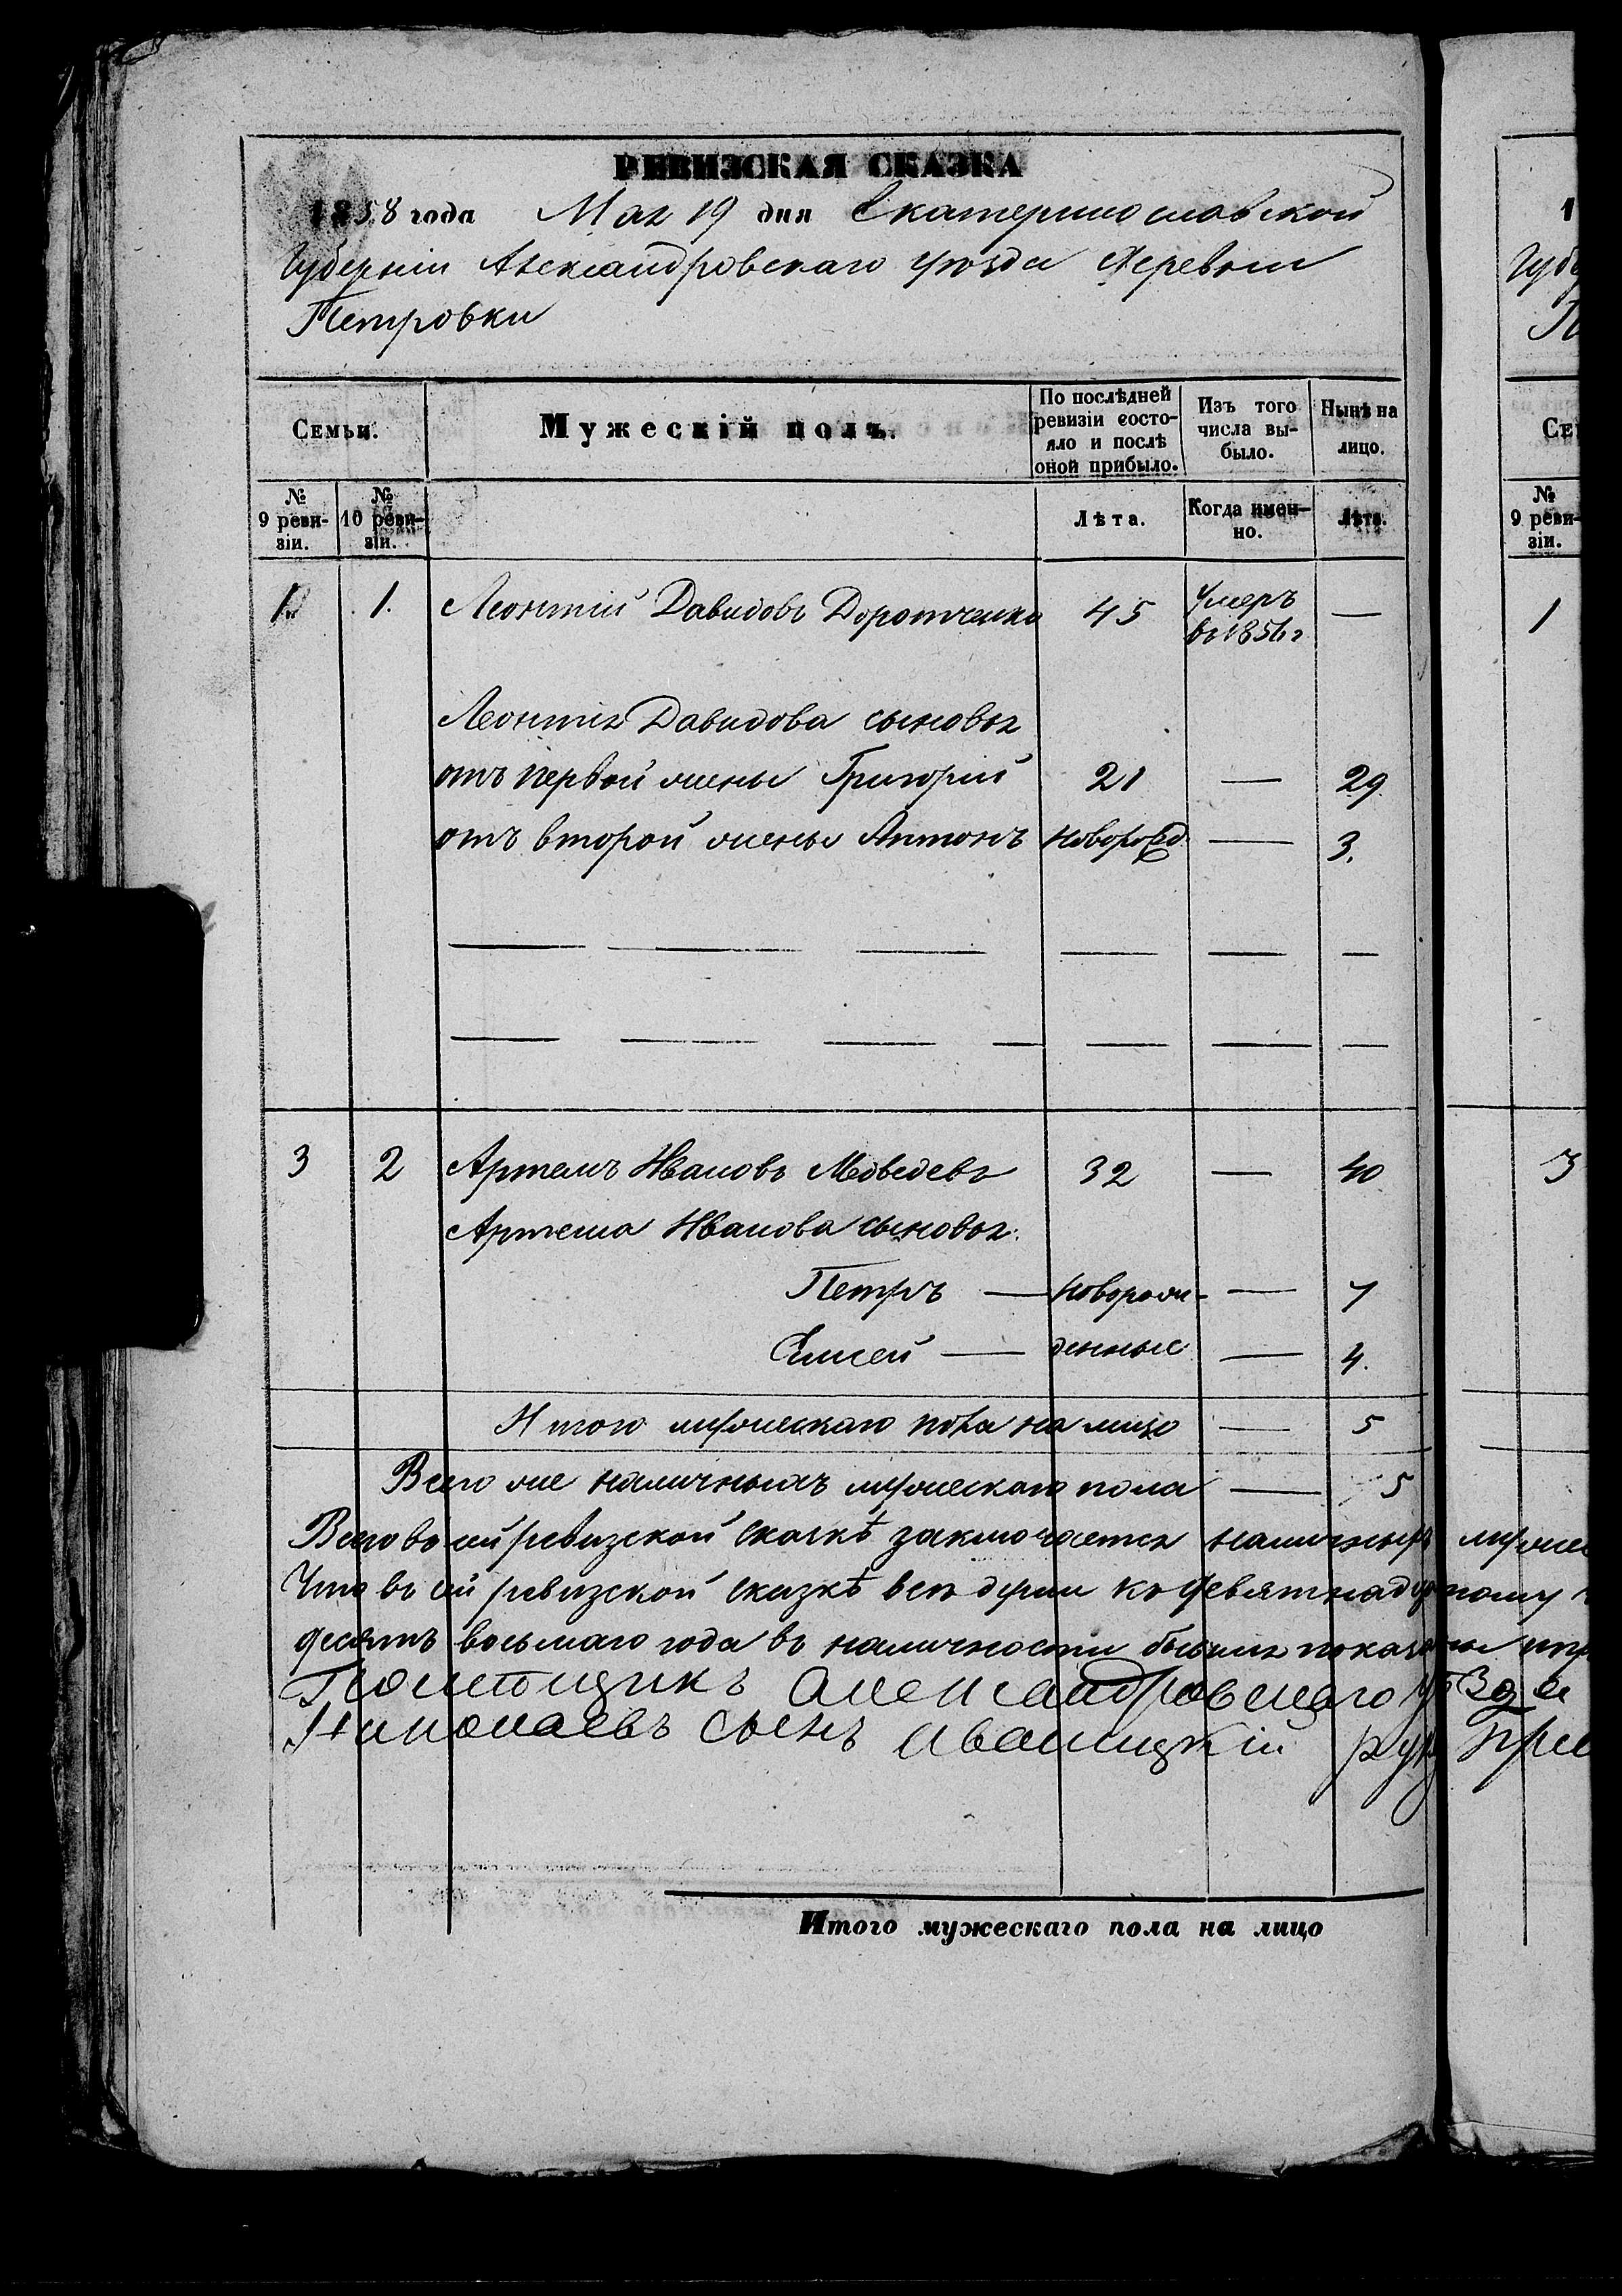 РЕВИЗСКАЯ СКАЗКА
1858 года Мая 19 дня Екатеринославской
Губерніи Александровскаго уѣзда Деревни
Петровки
Семьи.
Мужескій полъ.
По послѣдней ревизіи состояло и послѣ оной прибыло.
Изъ того числа выбыло.
Нынѣ на лицо.
№ 9 ревизіи.
№ 10 ревизіи.
Лѣта.
Когда именно.
Лѣта.
1 1. Леонтій Давидовъ Доротченко 45 умеръ въ 1856 г —
Леонтія Давидова сыновья
отъ первой жены Григорій 21 — 29
отъ второй жены Антонъ новорожд. — 3.
— — — — — —
— — — — — — —
3 2 Артемъ Ивановъ Медведевъ 32 — 40
Артема Иванова сыновья:
Петръ — новорож- — 7
Елисей — денные — 4.
Итого мужескаго пола на лицо — 5
Всего же наличныхъ мужескаго пола — 5
Всего въ сей ревизской сказкѣ заключается наличныхъ
Что въ сей ревизской сказкѣ всѣ души къ девятнадцатому
десятъ восьмаго года въ наличности бывшія показаны
Помѣщикъ Александровскаго уѣзда
Николаевъ сынъ Иваницкій
Итого мужескаго пола на лицо
1
Губе
П
Се
№ 9 реви-зіи.
1
3